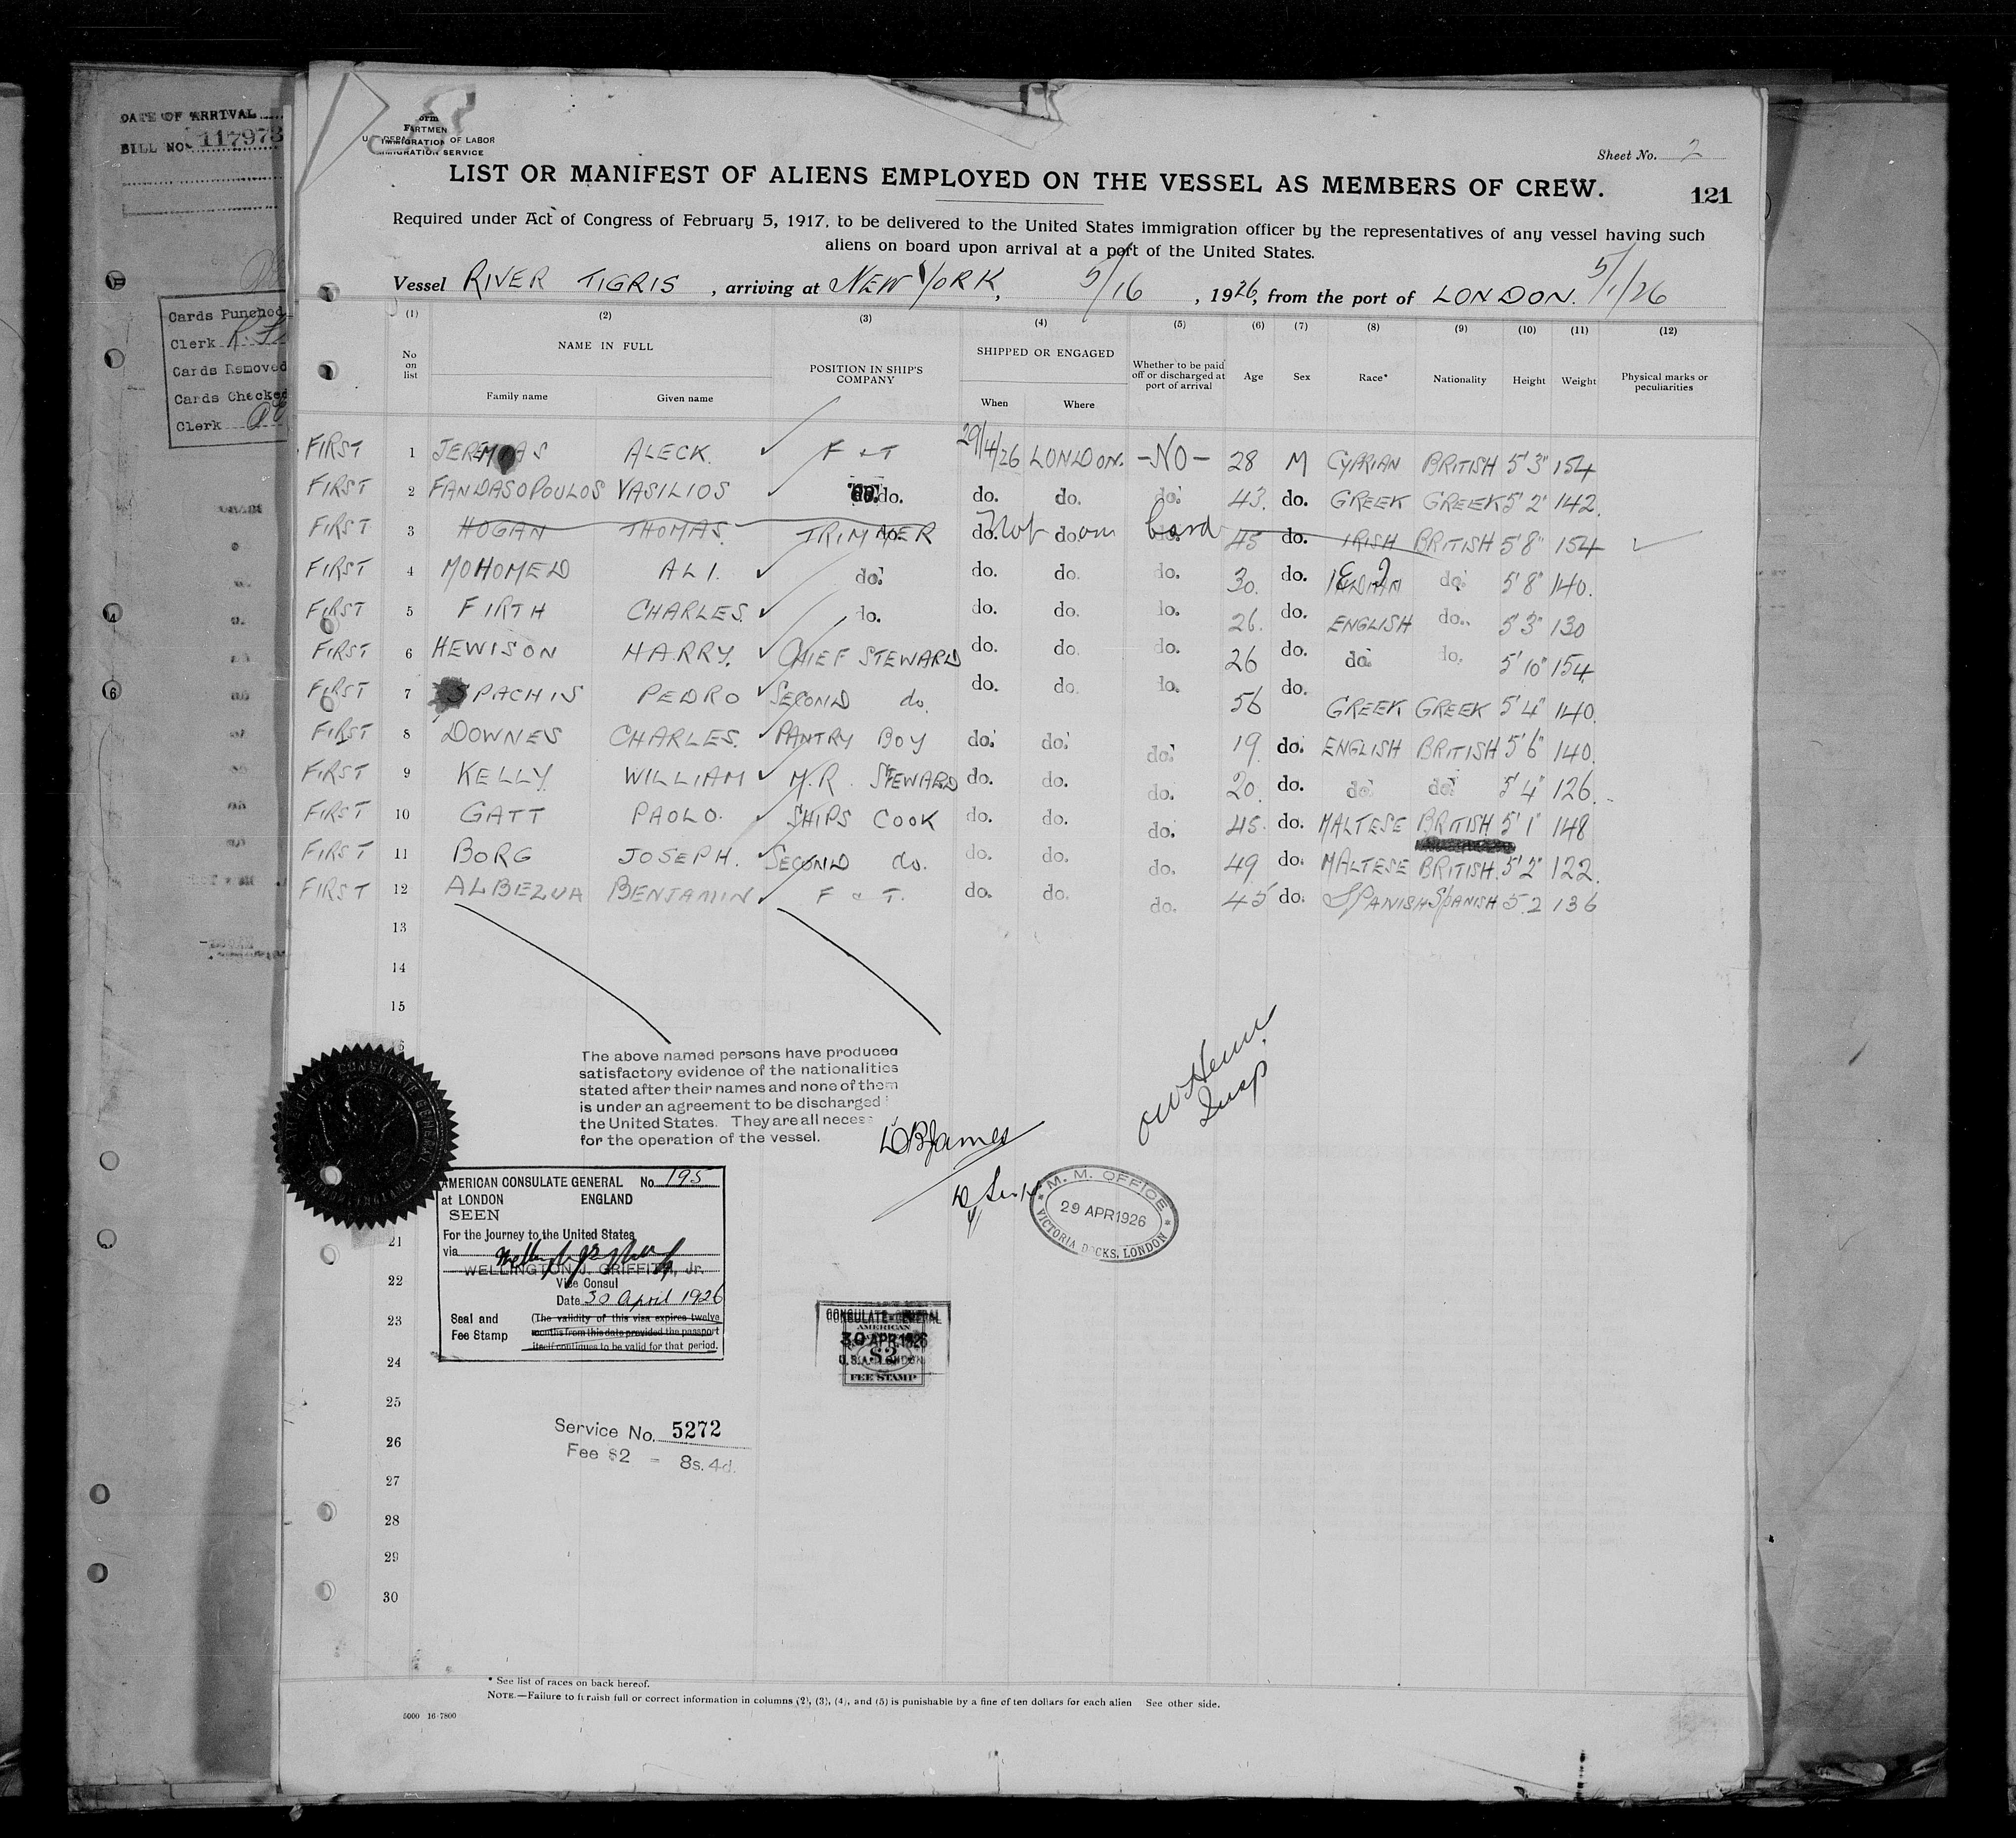 DATE OF ARRIVAL
BILL NO. 117973
Cards Punched
Clerk
Cards Removed
Cards Checked
Clerk
OF LABOR
IMMIGRATION SERVICE
Sheet No. 2
LIST OR MANIFEST OF ALIENS EMPLOYED ON THE VESSEL AS MEMBERS OF CREW.
121
Required under Act of Congress of February 5, 1917, to be delivered to the United States immigration officer by the representatives of any vessel having such
aliens on board upon arrival at a port of the United States.
Vessel RIVER TIGRIS, arriving at NEW YORK, 5/16, 1926, from the port of LONDON. 5/1/26
(1) (2) (3) (4) (5) (6) (7) (8) (9) (10) (11) (12)
No on list NAME IN FULL Family name Given name POSITION IN SHIP'S COMPANY SHIPPED OR ENGAGED When Where Whether to be paid off or discharged at port of arrival Age Sex Race* Nationality Height Weight Physical marks or peculiarities
FIRST 1 JEREMIAS ALECK. ✓ F & T 29/4/26 LONDON. -NO- 28 M CYPRIAN BRITISH 5'3" 154
FIRST 2 FANDASOPOULOS VASILIOS ✓ do. do. do. do. 43. do. GREEK GREEK 5'2" 142.
FIRST 3 HOGAN THOMAS. TRIMMER do. Not do. on do. board 45 do. IRISH BRITISH 5'8" 154 ✓
FIRST 4 MOHOMED ALI. ✓ do. do. do. do. 30. do. do. 5'8" 140.
FIRST 5 FIRTH CHARLES. ✓ do. do. do. do. 26. do. ENGLISH do. 5'3" 130
FIRST 6 HEWISON HARRY. ✓ CHIEF STEWARD do. do. do. 26 do. do. do. 5'10" 154
FIRST 7 SPACHIS PEDRO ✓ SECOND do. do. do. do. 56 do. GREEK GREEK 5'4" 140.
FIRST 8 DOWNES CHARLES. ✓ PANTRY BOY do. do. do. 19. do. ENGLISH BRITISH 5'6" 140.
FIRST 9 KELLY WILLIAM ✓ M.R. STEWARD do. do. do. 20. do. do. do. 5'4" 126.
FIRST 10 GATT PAOLO. ✓ SHIPS COOK do. do. do. 45. do. MALTESE BRITISH 5'1" 148
FIRST 11 BORG JOSEPH. ✓ SECOND do. do. do. do. 49 do. MALTESE BRITISH. 5'2" 122.
FIRST 12 ALBEZUA BENJAMIN ✓ F & T. do. do. do. 45 do. SPANISH SPANISH 5.2 136
13
14
15
The above named persons have produced
satisfactory evidence of the nationalities
stated after their names and none of them
is under an agreement to be discharged
the United States. They are all neces
for the operation of the vessel.
Insp
AMERICAN CONSULATE GENERAL No. 195
at LONDON ENGLAND
SEEN
For the Journey to the United States
via
WELLINGTON J. GRIFFITH, Jr.
Vice Consul
Date 30 April 1926
Seal and Fee Stamp
(The validity of this visa expires twelve
months from this date provided the passport
itself continues to be valid for that period.
M. M. OFFICE
29 APR 1926
VICTORIA DOCKS, LONDON
CONSULATE-GENERAL
AMERICAN
30 APR 1926
$2
U.S.A. LONDON
FEE STAMP
21
22
23
24
25
26
27
28
29
30
Service No. 5272
Fee $2 - 8s. 4d.
* See list of races on back hereof.
NOTE.—Failure to furnish full or correct information in columns (2), (3), (4), and (5) is punishable by a fine of ten dollars for each alien See other side.
5000 16-7800